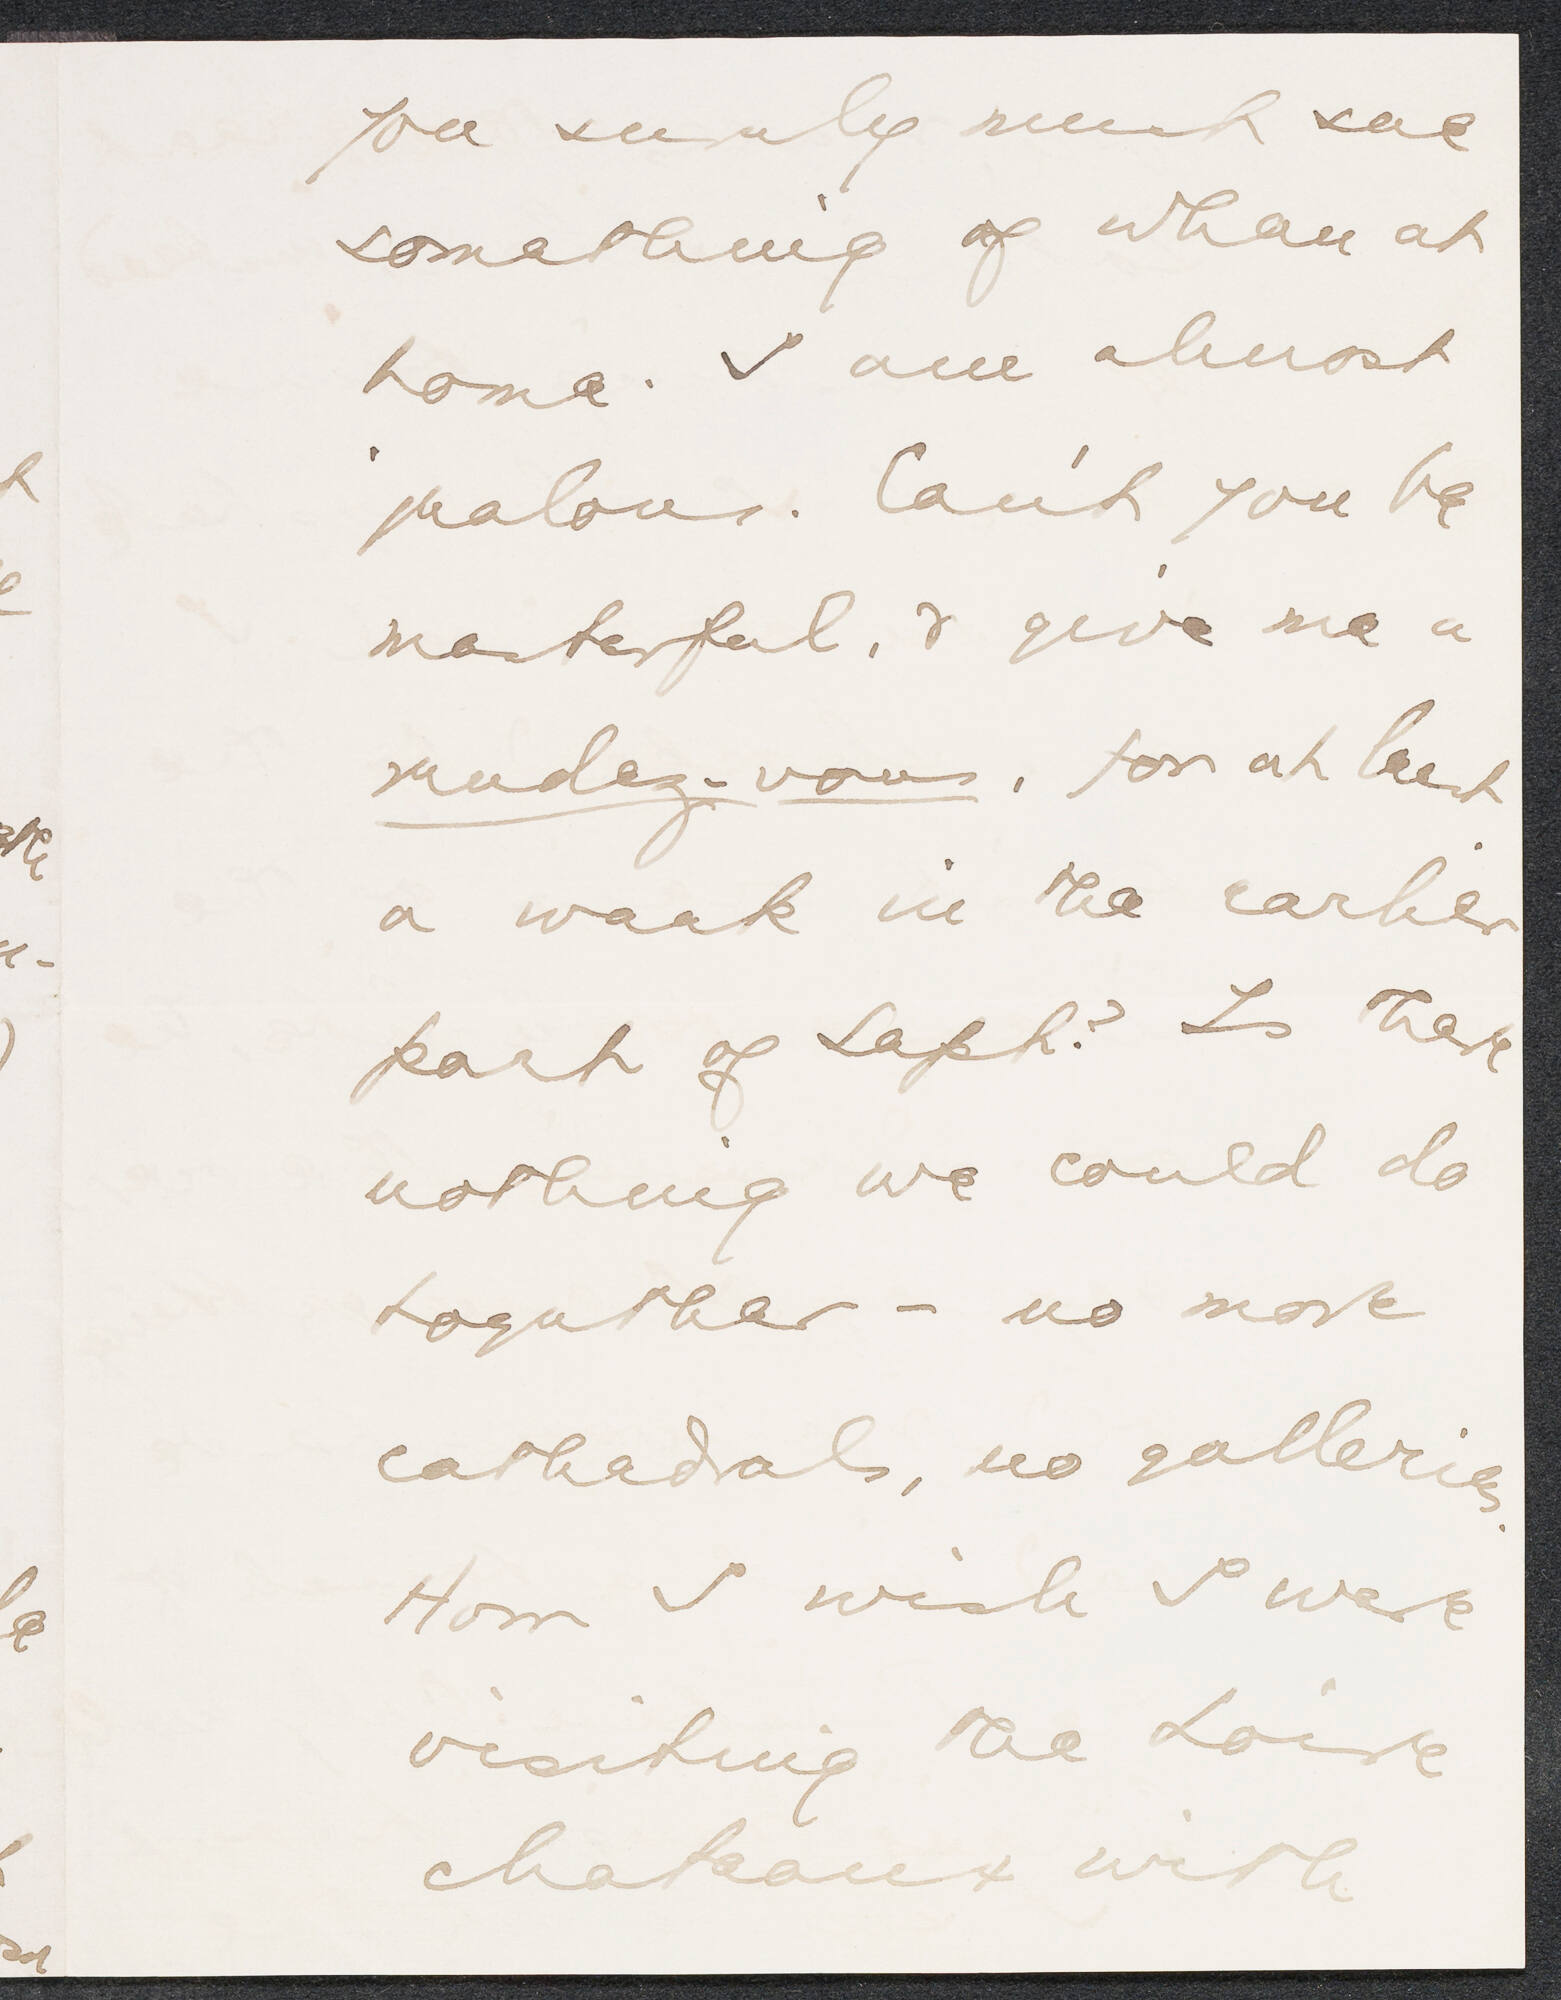 you surely must see
something of when at
home. I am almost
jealous. Can't you be
masterful, & give me a
rendez-vous, for at least
a week in the earlier
part of Sept.? Is there
nothing we could do
together - no more
cathedrals, no galleries.
How I wish I were
visiting the Loire
chateaux with